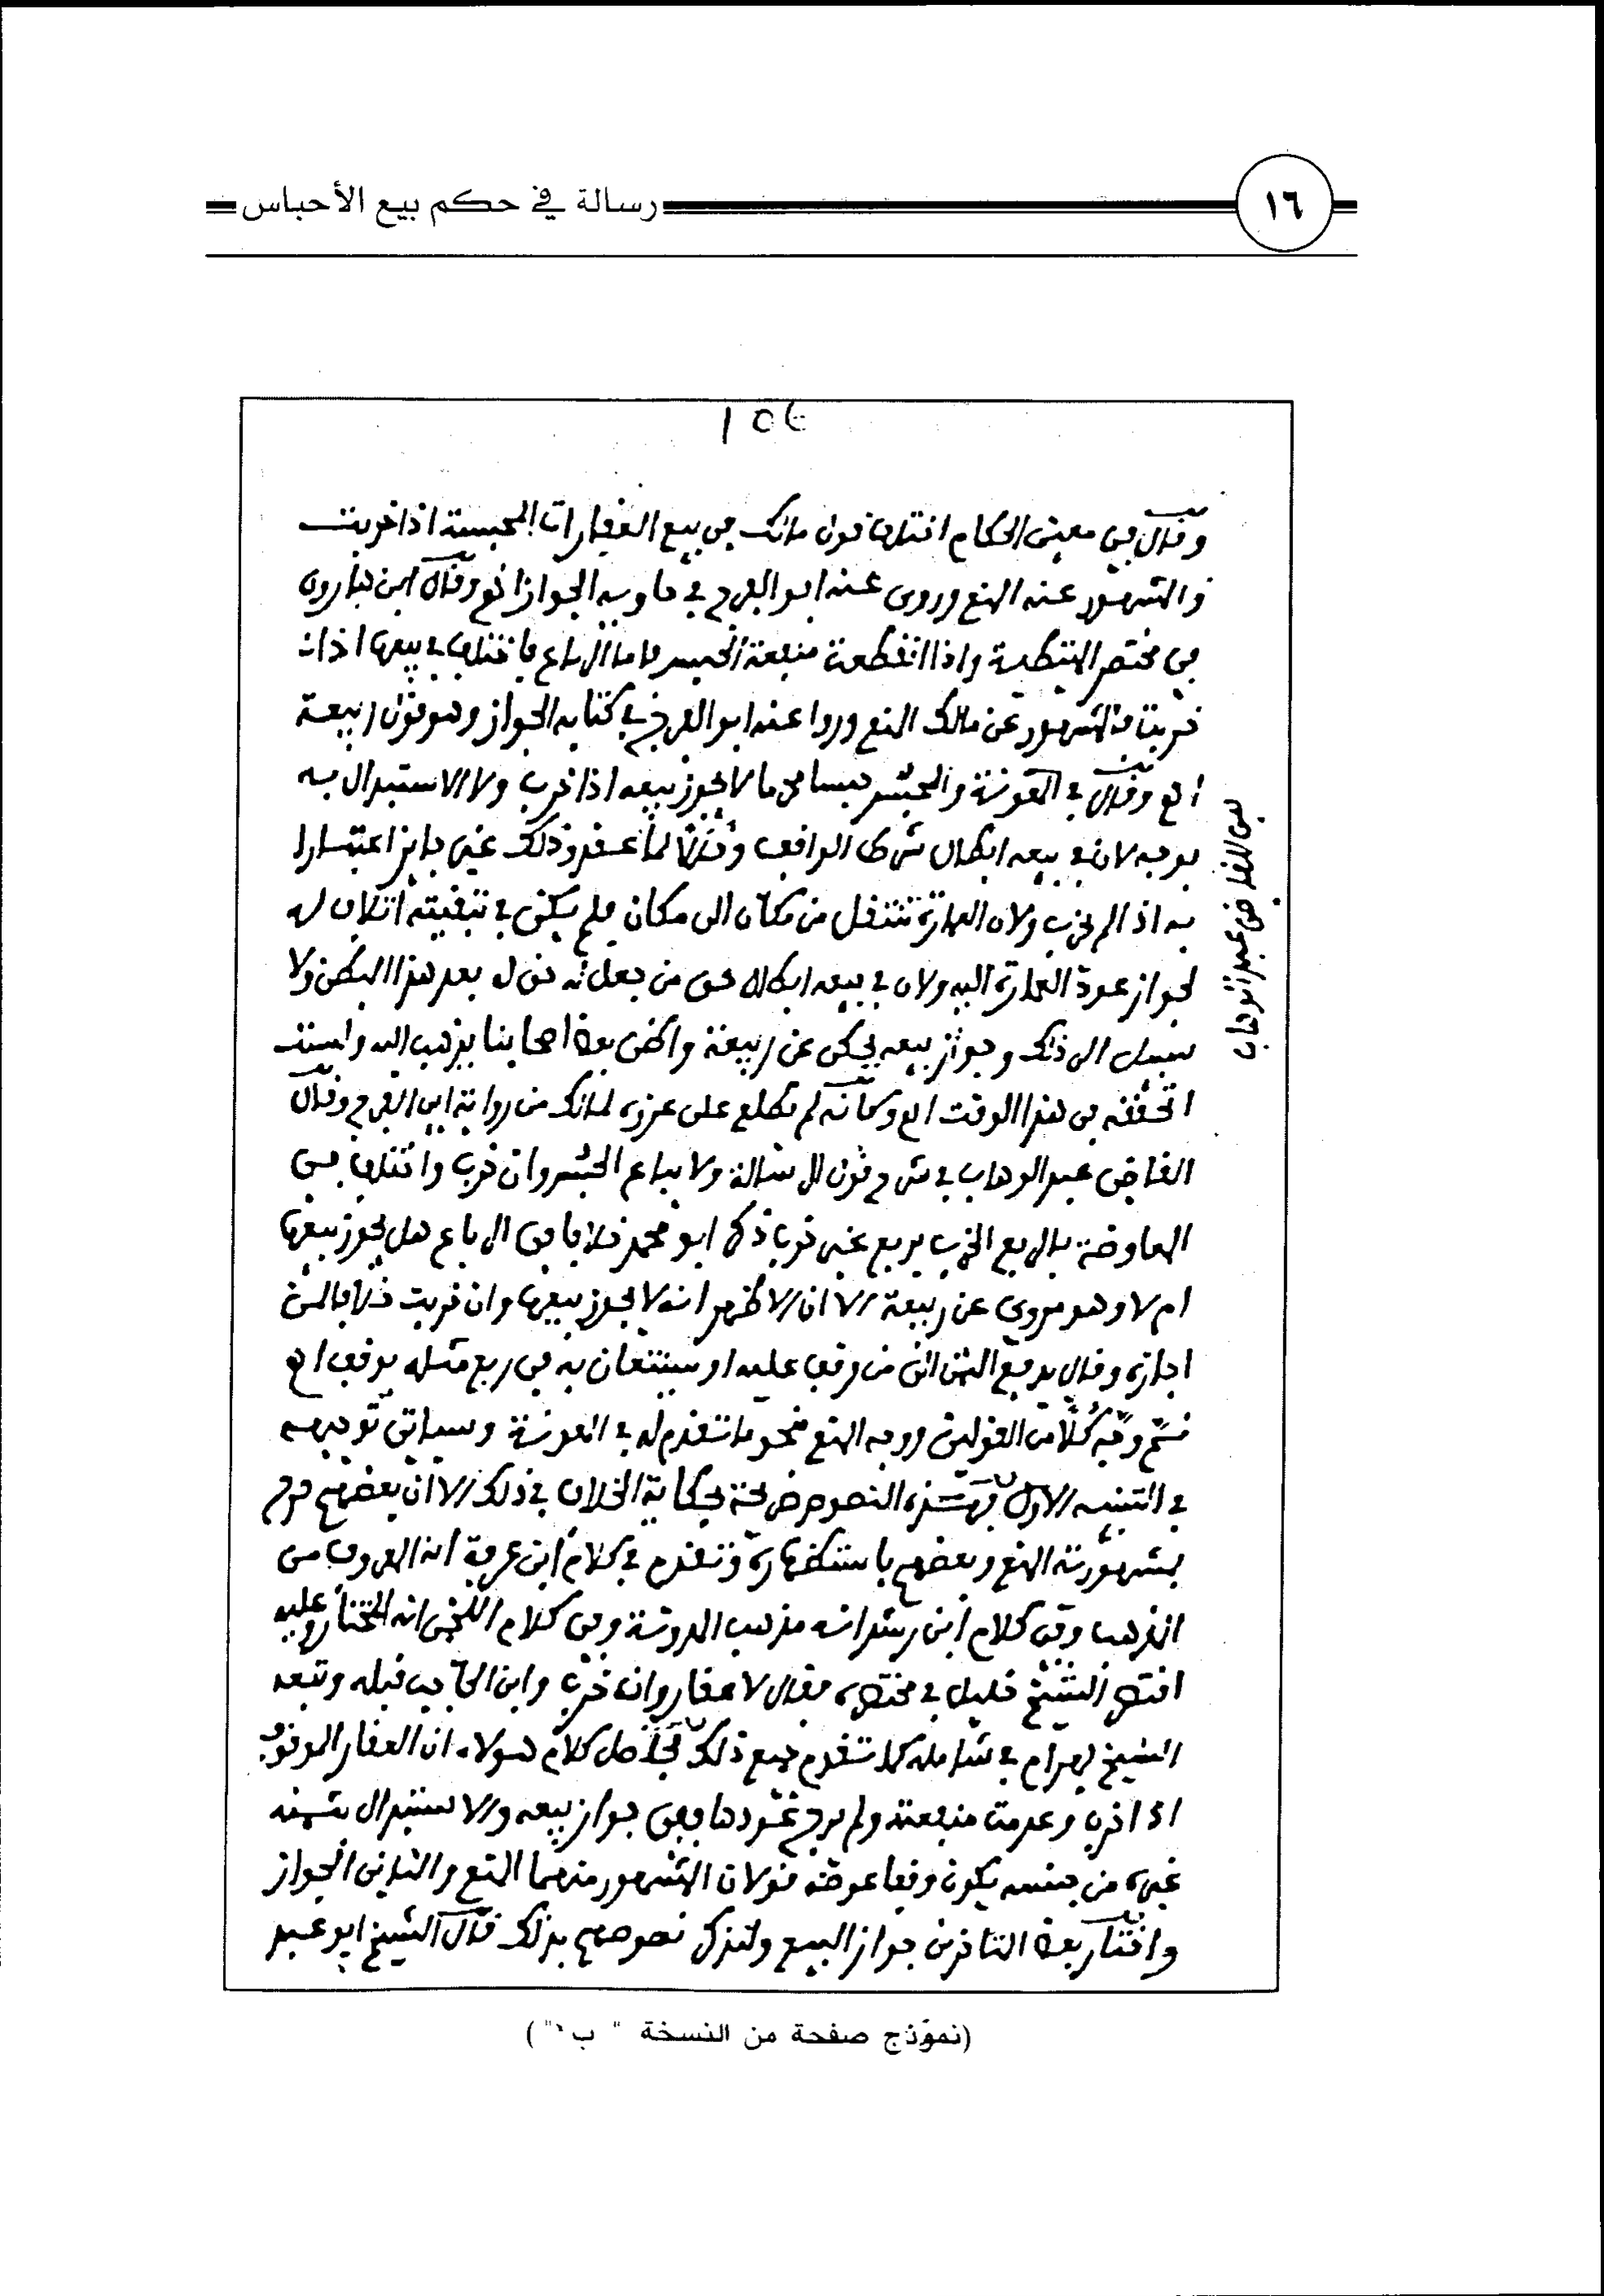 ١٦
رسالة في حكم بيع الأحباس
وقال في معين الحكام اختلف قول مالك في بيع العقارات المحبسة اذا خربت
والمشهور عنه المنع وروى عنه ابو الفرج في حاويه الجواز انتهى وقال ابن هارون
في مختصر المتيطية واذا انقطعت منفعة الحبس فاما الرباع فاختلف في بيعها اذا
خربت فالمشهور عن مالك المنع وروا عنه ابو الفرج في كتابه الجواز وهو قول ربيعة
وقال في المعونة والحبس لا يجوز بيعه اذا خرب ولا الاستبدال به
بوجه لان في بيعه ابطال شرط الواقف وذلك غير جايز اعتبارا
به اذا لم يخرب ولان العمارة تنتقل من مكان الى مكان فلم يكن في تبقيته اتلاف له
لجواز عودة العمارة اليه ولان في بيعه ابطال حق من جعل له حق له بعد هذا البطن ولا
سبيل الى ذلك وجواز بيعه يحكى عن ربيعة واظن بعض اصحابنا يذهب اليه ولست
اتحققه في هذا الوقت وكانه لم يطلع على عزوه لمالك من رواية ابي الفرج وقال
القاضي عبد الوهاب في شرح قول الرسالة ولا يباع الحبس وان خرب واختلف في
المعاوضة بالربع الخرب بربع غير خرب ذكر ابو محمد خلافا في الرباع هل يجوز بيعها
ام لا وهو مروي عن ربيعة الا ان الاظهر انه لا يجوز بيعها وان خربت خلافا لمن
اجازه وقال يدفع الثمن الى من وقف عليه او يستعان به في ربع مثله يوقف
ثم وجه كلا من القولين ووجه المنع بنحو ما تقدم له في المعونة وسياتي توجيهه
في التنبيه الاول فهذه النصوص صريحة بحكاية الخلاف في ذلك الا ان بعضهم صرح
بمشهورية المنع وبعضهم باستظهاره وتقدم في كلام ابن عرفة انه المعروف من
المذهب وفي كلام ابن رشد انه مذهب المدونة وفي كلام اللخمي انه المختار وعليه
اقتصر الشيخ خليل في مختصره فقال لا عقار وان خرب وابن الحاجب قبله وتبعه
الشيخ بهرام في شامله كما تقدم جميع ذلك فحاصل كلام هولاء ان العقار الموقوف
اذا خرب وعدمت منفعته ولم يرج عودها ففي جواز بيعه والاستبدال بثمنه
غيره من جنسه يكون وقفا عوضه قولان المشهور منهما المنع والثاني الجواز
واختار بعض المتاخرين جواز البيع ولنذكر نصوصهم بذلك قال الشيخ ابو عبد
للقاضي عبد الوهاب
(نموذج صفحة من النسخة " ب ")